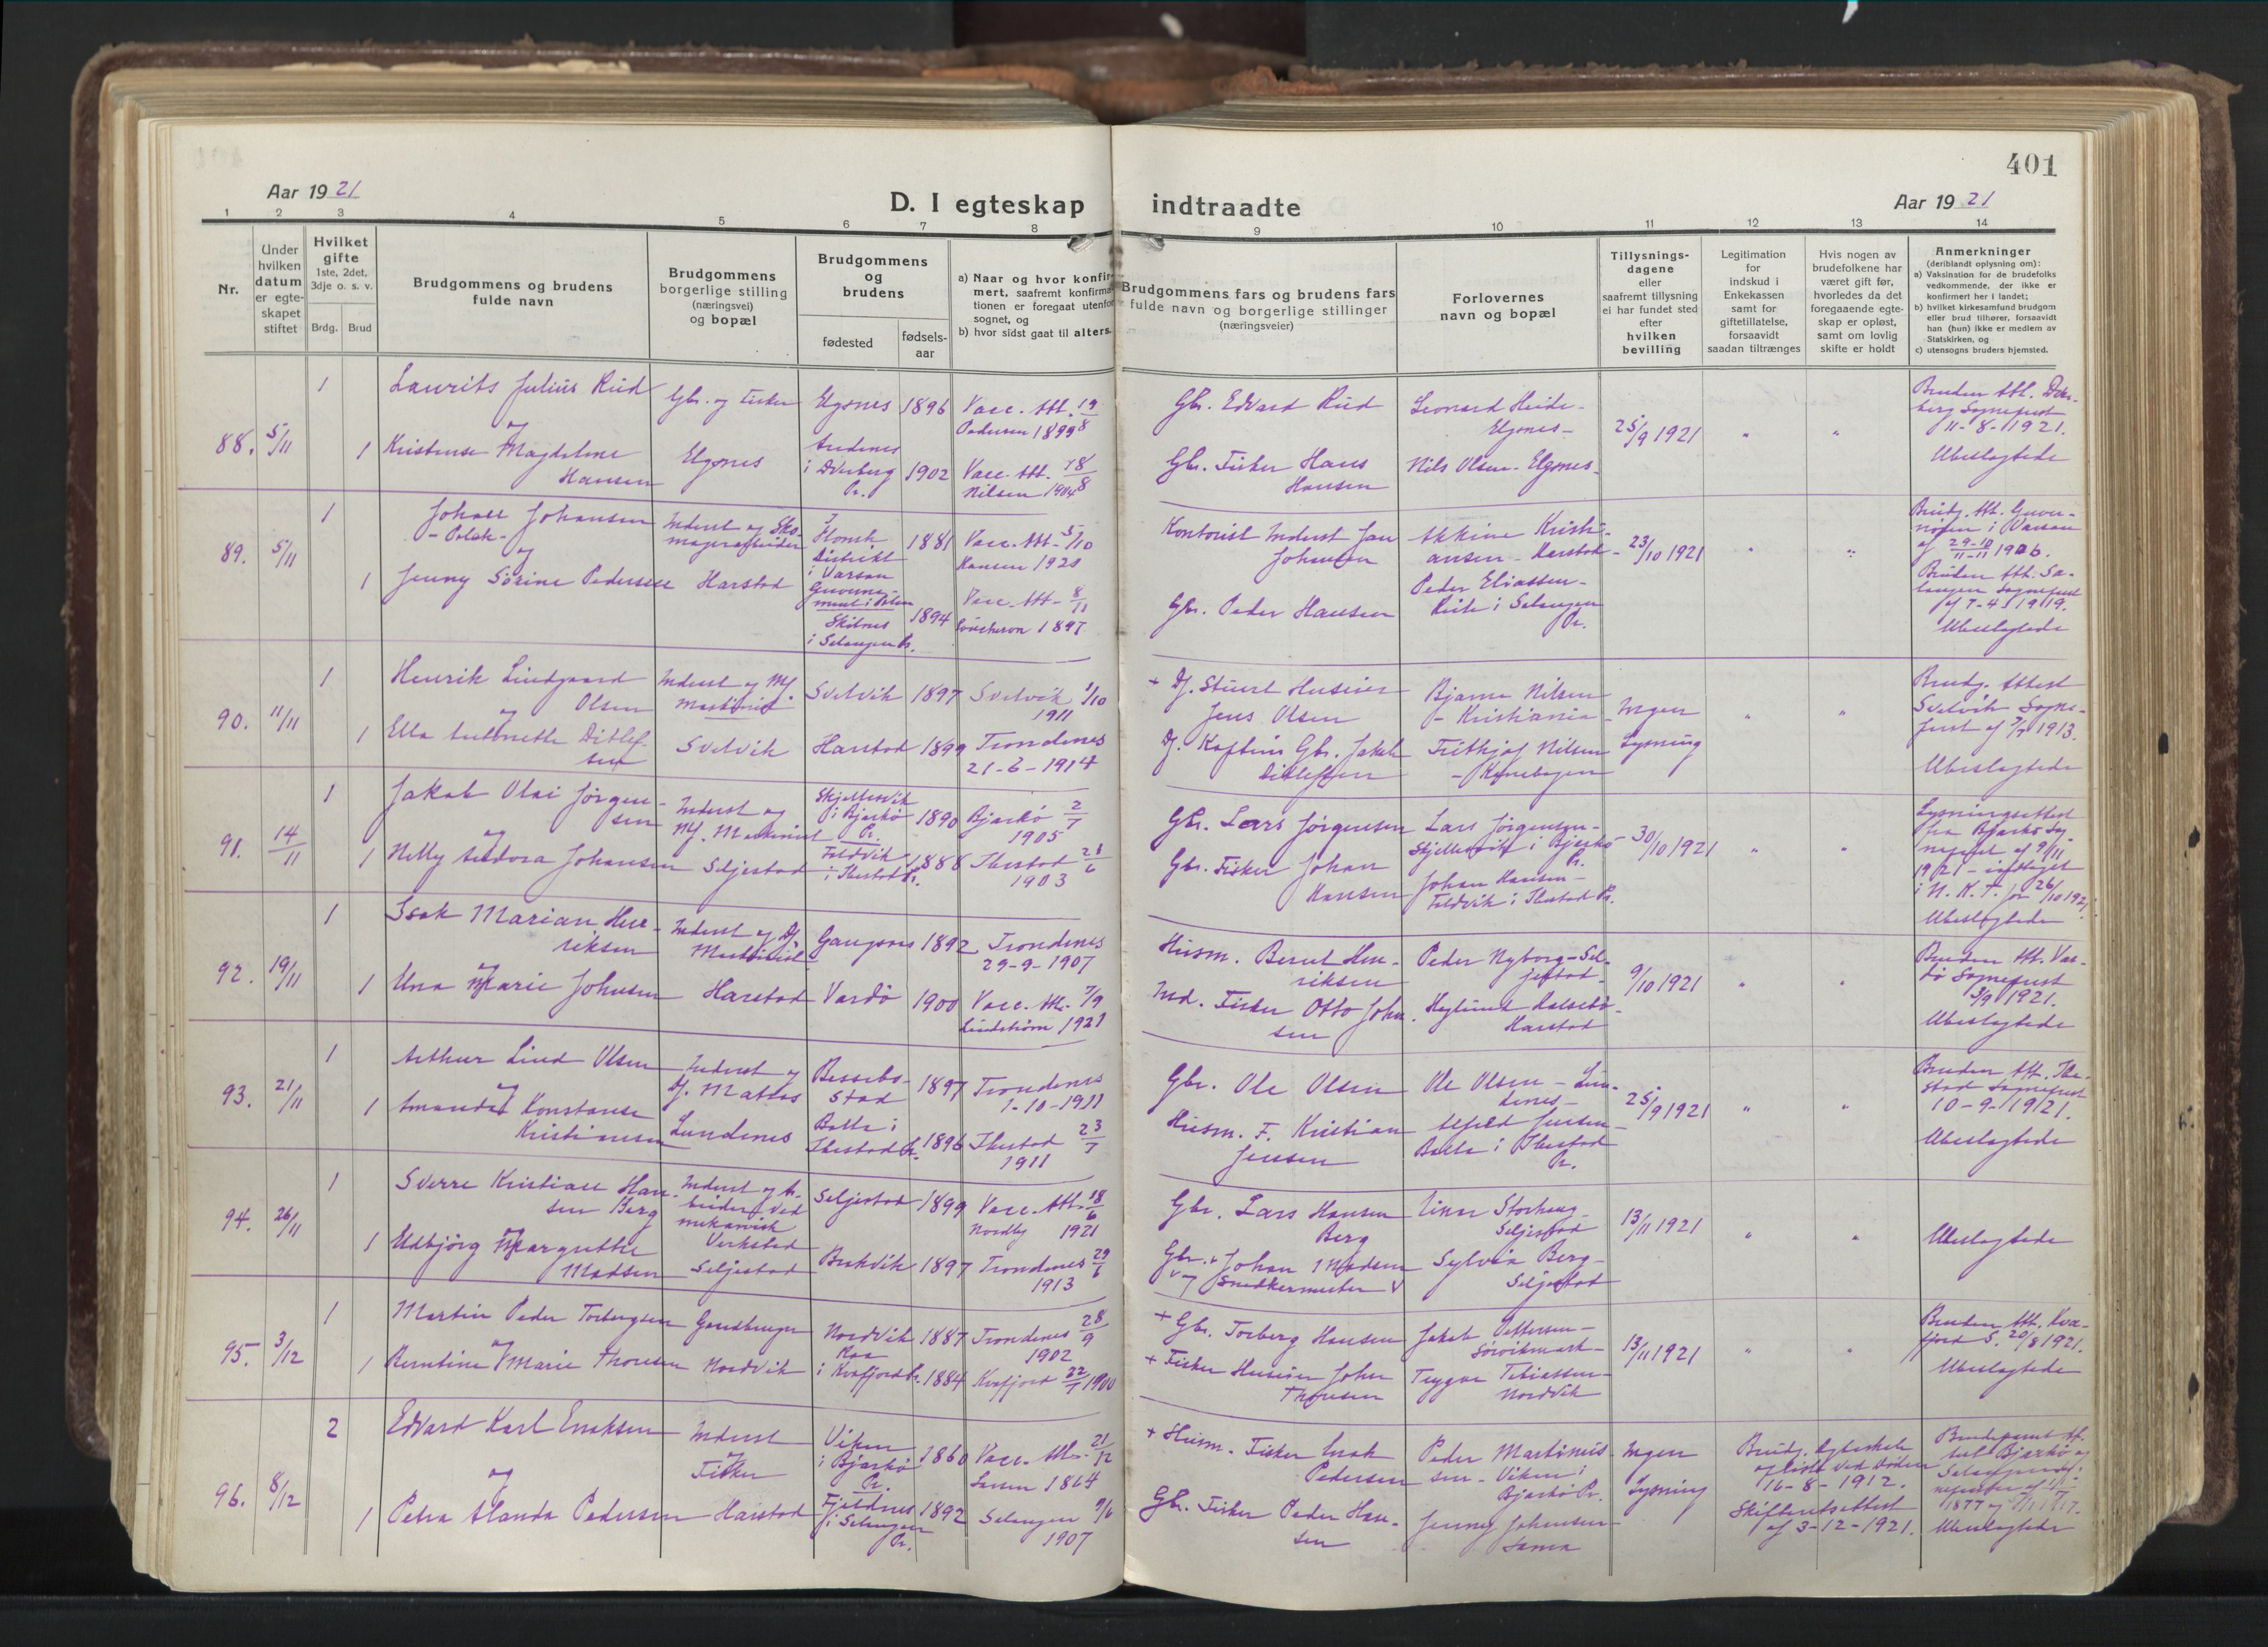 401
Aar 1921
D. I egteskap indtraadte
Aar 1921
1 2 3 4 5 6 7 8 9 10 11 12 13 14
Nr.
Under
hvilken
datum
er egte-
skapet
stiftet
Hvilket
gifte
1ste, 2det,
3dje o. s. v.
Brdg. Brud
Brudgommens og brudens
fulde navn
Brudgommens
borgerlige stilling
(næringsvei)
og bopæl
Brudgommens
og
brudens
fødested
fødsels-
aar
a) Naar og hvor konfir-
mert, saafremt konfirma-
tionen er foregaat utenfor
sognet, og
b) hvor sidst gaat til alters.
Brudgommens fars og brudens fars
fulde navn og borgerlige stillinger
(næringsveier)
Forlovernes
navn og bopæl
Tillysnings-
dagene
eller
saafremt tillysning
ei har fundet sted
efter
hvilken
bevilling
Legitimation
for
indskud i
Enkekassen
samt for
giftetillatelse,
forsaavidt
saadan tiltrænges
Hvis nogen av
brudefolkene har
været gift før,
hvorledes da det
foregaaende egte-
skap er opløst,
samt om lovlig
skifte er holdt
Anmerkninger
(deriblandt oplysning om):
a) Vaksination for de brudefolks
vedkommende, der ikke er
konfirmert her i landet;
b) hvilket kirkesamfund brudgom
eller brud tilhører, forsaavidt
han (hun) ikke er medlem av
Statskirken, og
c) utensogns bruders hjemsted.
88. 5/11
1
1
Laurits Julius Rud
og
Kristense Magdelene
Hansen
Gbr. og Fisker
Elgsnes
Elgsnes 1896
Andenes
i Dverberg 1902
Pr.
Vacc. Att. 19/8
Pedersen 1899
Vacc. Att. 18/8
Nilsen 1904
Gbr. Edvard Rud
Gbr. Fisker Hans
Hansen
Leonard Heide-
Elgsnes-
Nils Olsen- Elgsnes-
25/9 1921
Bruden Att. Dver-
berg Sogneprest
11-8-1921.
Ubeslegtede
89. 5/11
1
1
Johan Johansen
- Polak -
og
Jenny Sørine Pedersen
Inderst og Sko-
magerarbeider
Harstad
Distrikt 1881
i Varsau
Guverne-
ment i Polen
1894
i Selangen Pr.
Vacc. Att. 5/10
Hansen 1921
Vacc. Att. 8/11
1897
Kontorist Inderst Jan
Johansen
Gbr. Peder Hansen
Kristi-
ansen - Harstad -
Peder Eliassen -
i Selangen
Pr.
23/10 1921
Brudg. Att. Guver-
nøren i Varsau
af 29-10/11-11 1906.
Bruden Att. Sa-
langen Sogneprest
af 7-4-1919.
Ubeslegtede
90. 11/11
1
1
Henrik Lindgaard
og Olsen
Ella Antonette Ditlef-
sen
Inderst og Mf.
Maskinist
Svelvik
Svelvik 1897
Harstad 1899
Svelvik 1/10
1911
Trondenes
21-6-1914
+ Df. Stuert Huseier
Jens Olsen
Df. Kaptein Gbr. Jakob
Ditlefsen
Bjarne Nilsen
- Kristiania -
Frithjof Nilsen
Ingen
Lysning
Brudg. Attest
Svelvik Sogne-
prest af 1913.
Ubeslegtede
91. 14/11
1
1
Jakob Olai Jørgen-
og sen
Nelly Andora Johansen
Inderst og
Mf. Maskinist
Seljestad
Skjellesvik
i Bjarkø 1890
Pr.
Foldvik 1888
i Ibestad Pr.
Bjarkø 2/7
1905
Ibestad 28/6
1903
Gbr. Lars Jørgensen
Gbr. Fisker Johan
Hansen
Lars Jørgensen-
Skjellesvik i Bjarkø
Pr.
Johan Hansen-
Foldvik i Ibestad Pr.
30/10 1921
Lysningsattest
fra Bjarkø Sog-
neprest af 9/11
1921 - indtaget
i N. K. T. for 26/10 1921.
Ubeslegtede
92. 19/11
1
1
Isak Marian Hen-
riksen
og
Una Marie Johnsen
Inderst og Df.
Maskinist
Harstad
Gangsaas 1892
Vardø 1900
Trondenes
29-9-1907
Vacc. Att. 7/9
Lindstrøm 1921
Husm. Bernt Hen-
riksen
Ind. Fisker Otto John-
sen
Peder Nyborg-Sel-
jestad-
Harstad
9/10 1921
Bruden Att. Var-
dø Sogneprest
3/9 1921.
Ubeslegtede
93. 21/11
1
1
Arthur Lind Olsen
og
Amanda Konstanse
Kristiansen
Inderst og
Df. Matros
Lundenes
Bessebo-
stad 1897
Balla i
Ibestad Pr. 1896
Trondenes
1-10-1911
Ibestad 23/7
1911
Gbr. Ole Olsen
Husm. F. Kristian
Jensen
Ole Olsen - Lun-
denes-
Alfred Jensen-
Balla i Ibestad
Pr.
25/9 1921
Bruden Att. Ibe-
stad Sogneprest
10-9-1921.
Ubeslegtede
94. 26/11
1
1
Sverre Kristian Han-
sen Berg
og
Edbjørg Margrethe
Madsen
Inderst og Ar-
beider ved
mekanisk
Verksted
Seljestad
Seljestad 1899
Bukvik 1897
Vacc. Att. 18/6
Nordby 1921
Trondenes 29/6
1913
Gbr. Lars Hansen
Berg
Gbr. Johan Madsen
Snedkermester
Einar Storhaug-
Seljestad
Sylvia Berg-
Seljestad
13/11 1921
Ubeslegtede
95. 3/12
1
1
Martin Peder Torbergsen
og
Berntine Marie Thoresen
Gaardbruger
Nordvik
Nordvik 1887
Raa
i Kvæfjord Pr. 1884
Trondenes 28/9
1902
Kvæfjord 22/7 1900
+ Gbr. Torberg Hansen
+ Fisker Huseier Johan
Thoresen
Jakob Pettersen-
Sørvikmark-
Trygve Tobiassen-
Nordvik
13/11 1921
Bruden Att. Kvæ-
fjord S. 20/8 1921.
Ubeslegtede
96. 8/12
2
1
Edvard Karl Enoksen
og
Petra Alanda Pedersen
Inderst
og
Fisker
Harstad
Viken
i Bjarkø 1860
Pr.
Fjeldnes 1892
i Selangen
Pr.
Vacc. Att. 21/12
1864
Selangen 9/6
1907
+ Husm. Fisker Enok
Pedersen
Gbr. Fisker Peder Han-
sen
Peder Martinus-
sen - Viken i
Bjarkø Pr.
Jenny Johansen-
Sama
Ingen
Lysning
Brudg. Egteskab
opløst ved Døden
16-8-1912.
Skifteretsattest
af 3-12-1921.
Bjarkø og
Ubeslegtede